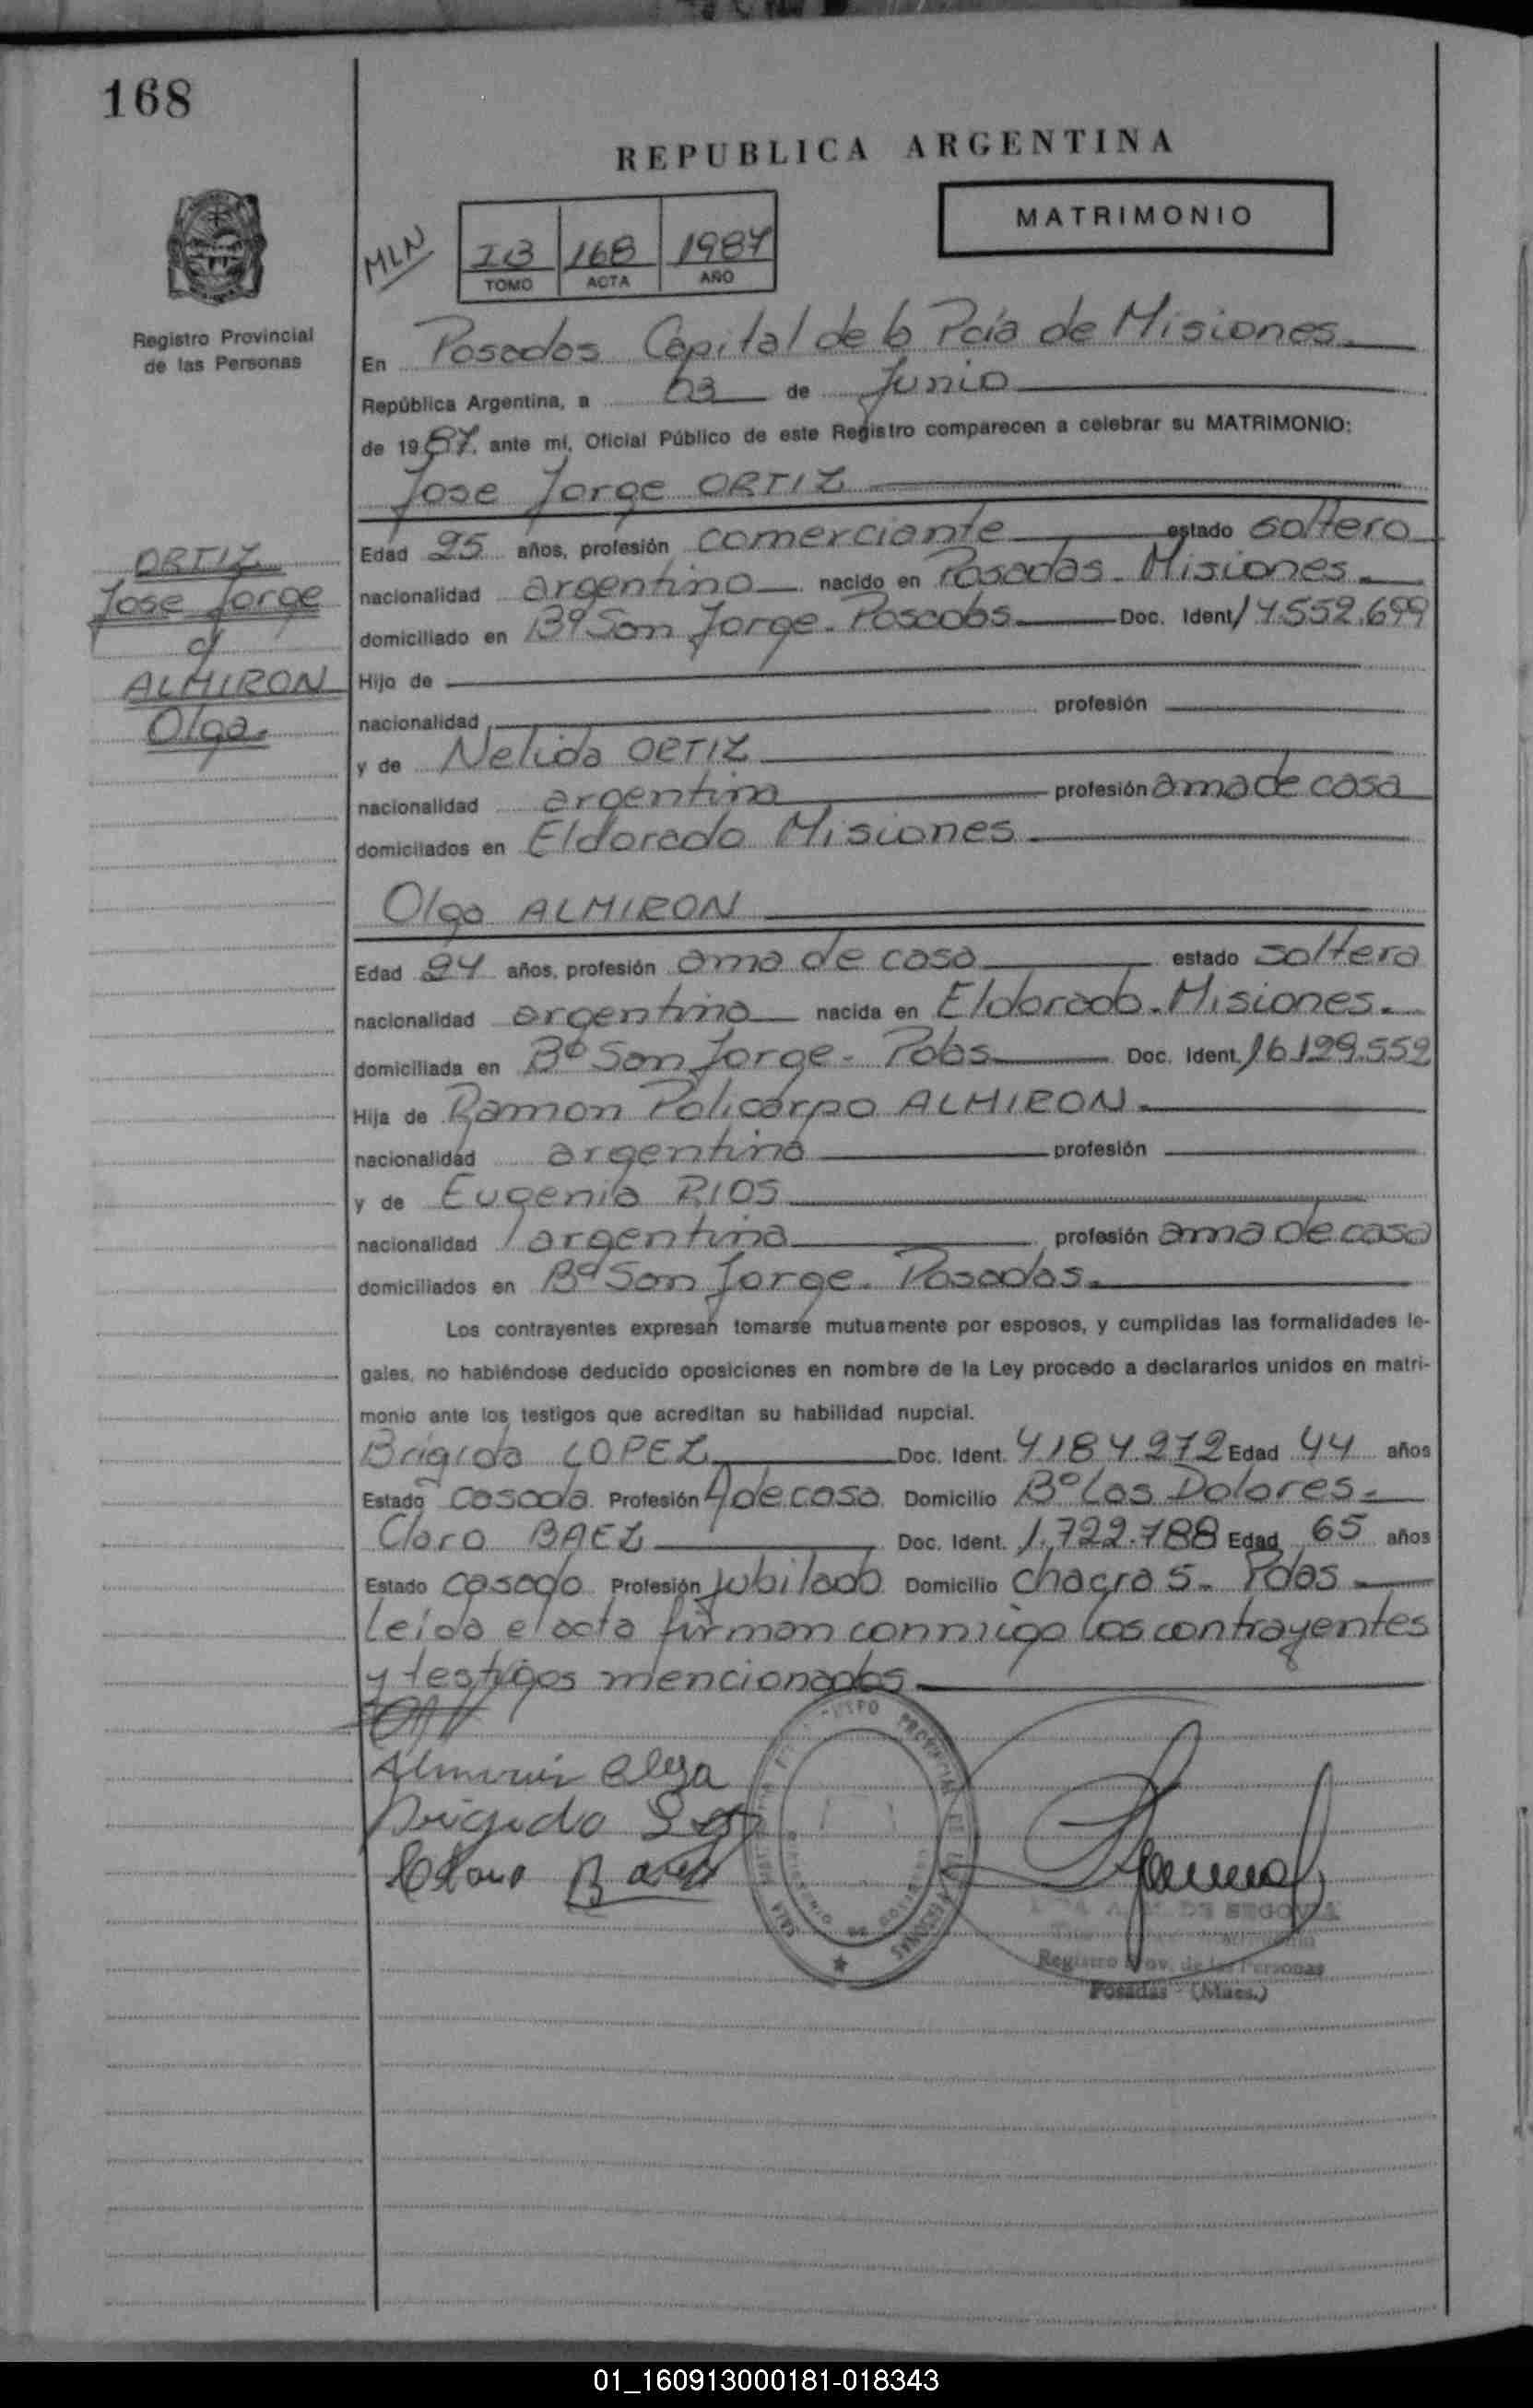 168
REPUBLICA ARGENTINA
MATRIMONIO
MLN
IB 168 1987
TOMO ACTA AÑO
Registro Provincial
de las Personas
En Posadas Capital de la Pcia de Misiones
República Argentina, a 03 de Junio
de 1987. ante mí, Oficial Público de este Registro comparecen a celebrar su MATRIMONIO:
Jose Jorge ORTIZ
ORTIZ
Jose Jorge
c/
ALMIRON
Olga.
Edad 25 años, profesión comerciante estado soltero
nacionalidad argentino nacido en Posadas - Misiones.
domiciliado en Bº San Jorge - Posadas Doc. Ident. 14.552.699
Hijo de
nacionalidad profesión
y de Nelida ORTIZ
nacionalidad argentina profesión ama de casa
domiciliados en Eldorado Misiones
Olga ALMIRON
Edad 24 años, profesión ama de casa estado soltera
nacionalidad argentina nacida en Eldorado - Misiones.
domiciliada en Bº San Jorge - Pdas Doc. Ident. 16.129.552
Hija de Ramon Policarpo ALMIRON.
nacionalidad argentina profesión
y de Eugenia RIOS
nacionalidad argentina profesión ama de casa
domiciliados en Bº San Jorge - Posadas.
Los contrayentes expresan tomarse mutuamente por esposos, y cumplidas las formalidades le-
gales, no habiéndose deducido oposiciones en nombre de la Ley procedo a declararlos unidos en matri-
monio ante los testigos que acreditan su habilidad nupcial.
Brigida LOPEZ Doc. Ident. 4.184.272 Edad 44 años
Estado casada Profesión A de casa Domicilio Bº Los Dolores.
Claro BAEZ Doc. Ident. 1.722.788 Edad 65 años
Estado casado Profesión jubilado Domicilio chacra 5 - Pdas
Leida el acta firman conmigo los contrayentes
y testigos mencionados
Almiron Olga
Brigida
Claro Baez
DE SEGOVIA
Registro Prov. de las Personas
Posadas - (Mnes.)
01_160913000181-018343